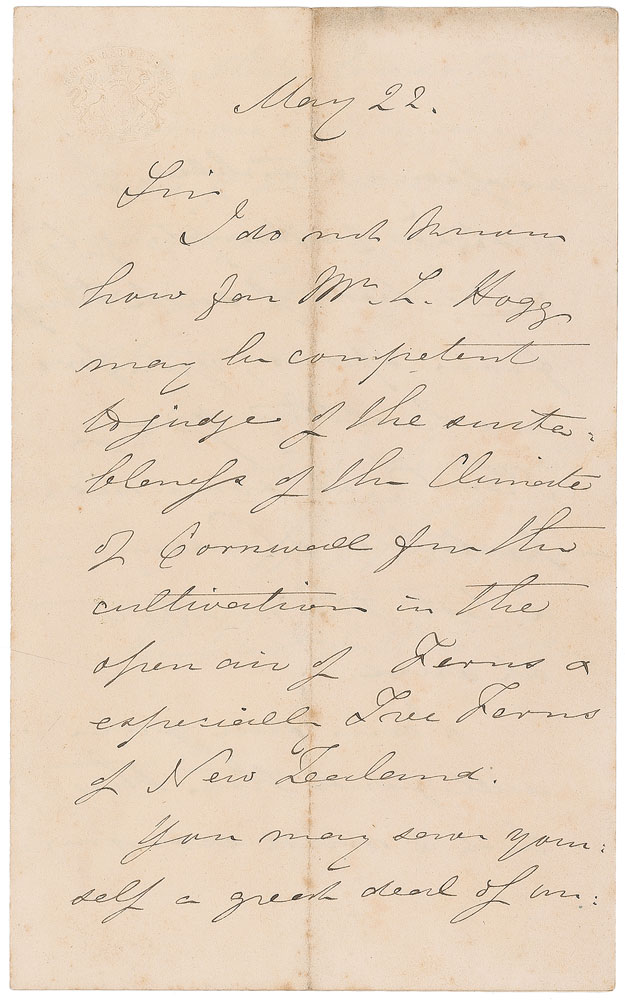 May 22.
Sir
I do not know
how far Mr. L. Hogg
may be competent
to judge of the suita:
bleness of the Climate
of Cornwall for the
cultivation in the
open air of Ferns &
especially Tree Ferns
of New Zealand.
You may save your:
self a great deal of un: